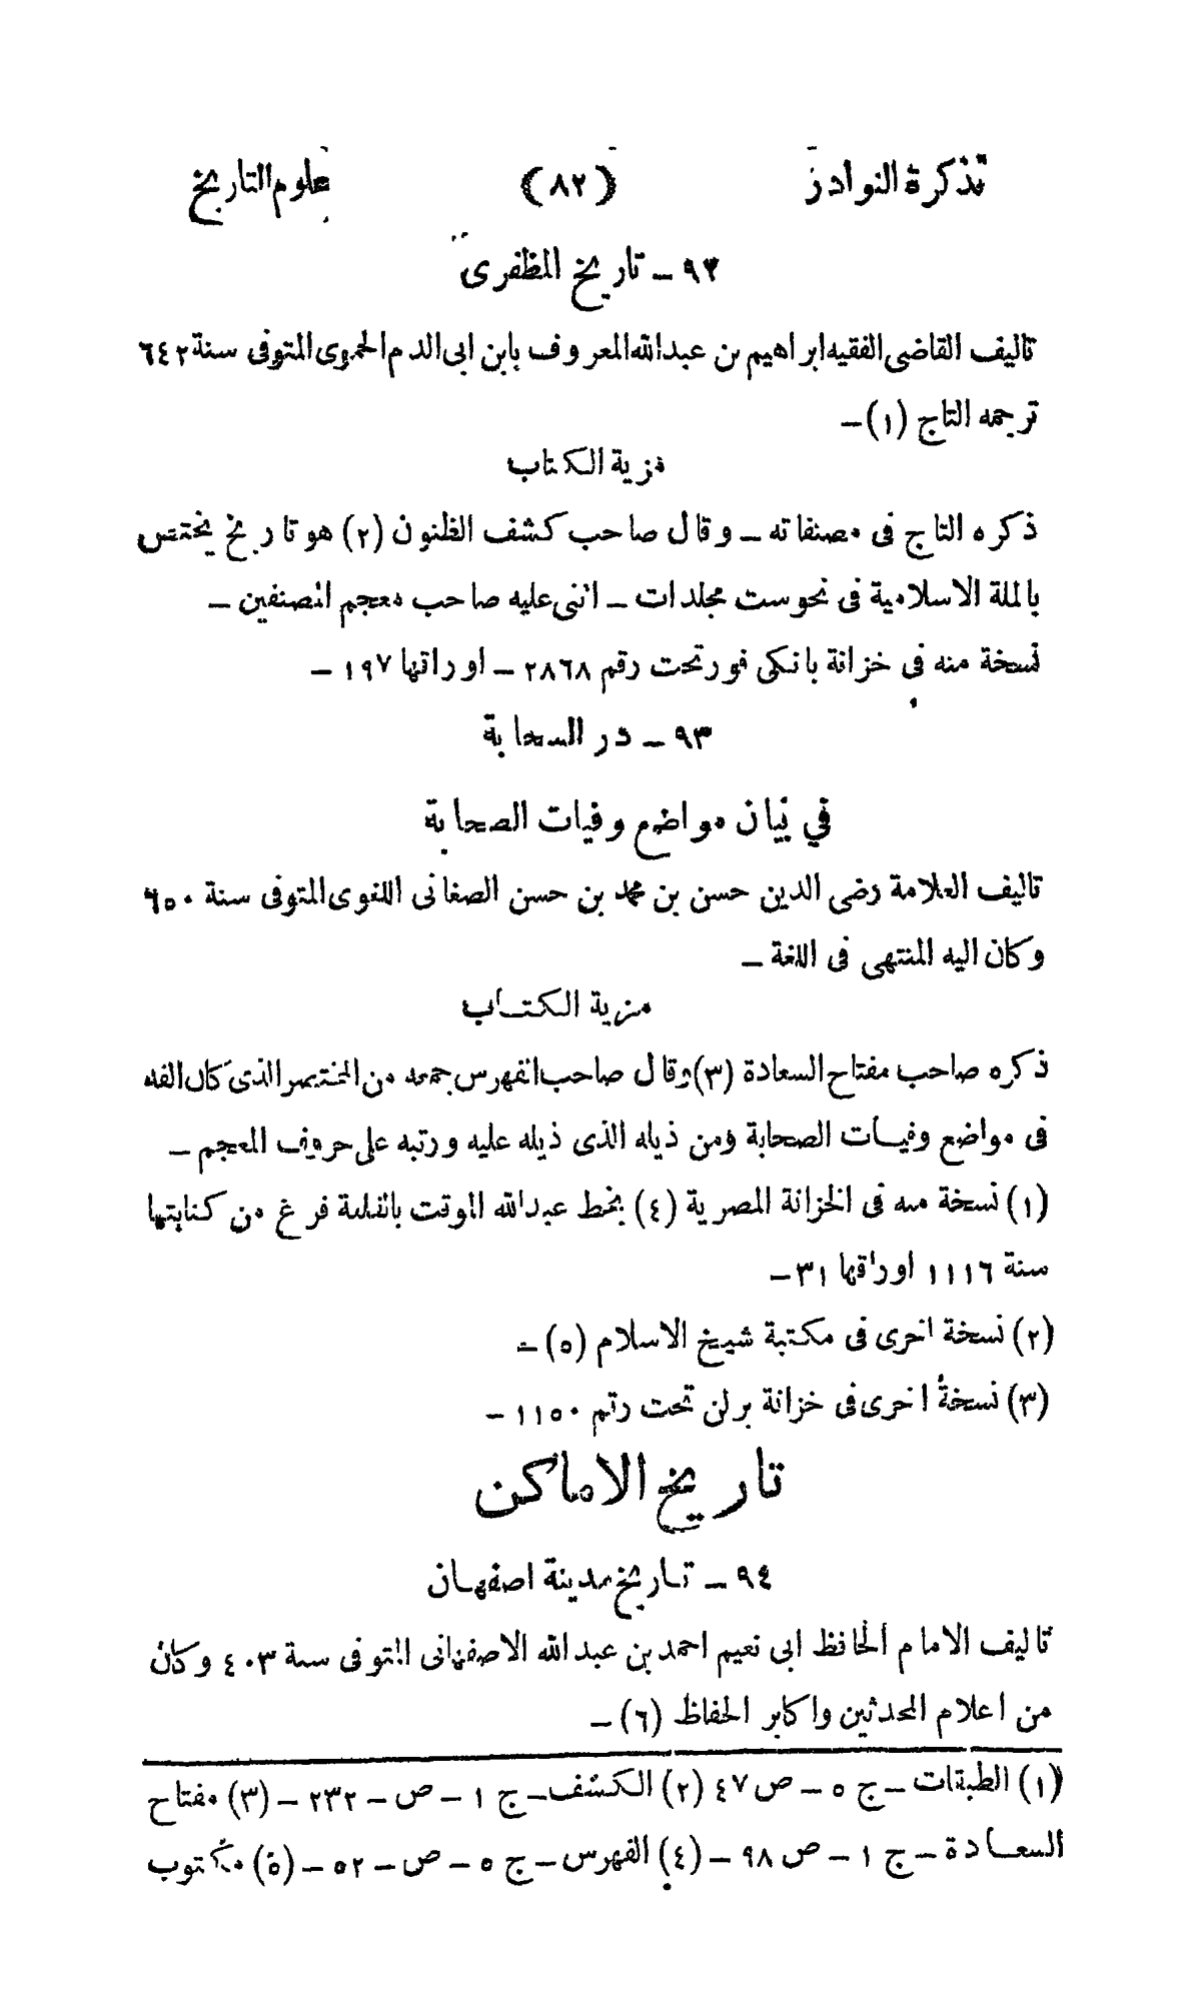 تذكرة النوادر (٨٢) علوم التاريخ
٩٣ – تاريخ المظفرى
تاليف القاضى الفقيه ابراهيم بن عبدالله المعروف بابن ابى الدم الحموى المتوفى سنة ٦٤٢
ترجمه التاج (١) –
مزية الكتاب
ذكره التاج فى مصنفاته – وقال صاحب كشف الظنون (٢) هو تاريخ يختص
بالملة الاسلامية فى نحوست مجلدات – اثنى عليه صاحب معجم المصنفين –
نسخة منه فى خزانة بانكى فور تحت رقم ٢٨٦٨ – اوراقها ١٩٧ –
٩٣ – در السحابة
في بيان مواضع وفيات الصحابة
تاليف العلامة رضى الدين حسن بن محمد بن حسن الصغانى اللغوى المتوفى سنة ٦٥٠
وكان اليه المنتهى فى اللغة –
مزية الكتاب
ذكره صاحب مفتاح السعادة (٣) وقال صاحب الفهرس جمعه من المختصر الذى كان الفه
فى مواضع وفيات الصحابة ومن ذيله الذى ذيله عليه ورتبه على حروف المعجم –
(١) نسخة منه فى الخزانة المصرية (٤) بخط عبدالله الموقت بالقلعة فرغ من كتابتها
سنة ١١١٦ اوراقها ٣١ –
(٢) نسخة اخرى فى مكتبة شيخ الاسلام (٥) –
(٣) نسخة اخرى فى خزانة برلن تحت رقم ١١٥٠ –
تاريخ الاماكن
٩٤ – تاريخ مدينة اصفهان
تاليف الامام الحافظ ابى نعيم احمد بن عبد الله الاصفهانى المتوفى سنة ٤٠٣ وكان
من اعلام المحدثين واكابر الحفاظ (٦) –
(١) الطبقات – ج ٥ – ص ٤٧ (٢) الكشف – ج ١ – ص – ٢٣٢ – (٣) مفتاح
السعادة – ج ١ – ص ٩٨ – (٤) الفهرس – ج ٥ – ص – ٥٢ – (٥) مكتوب